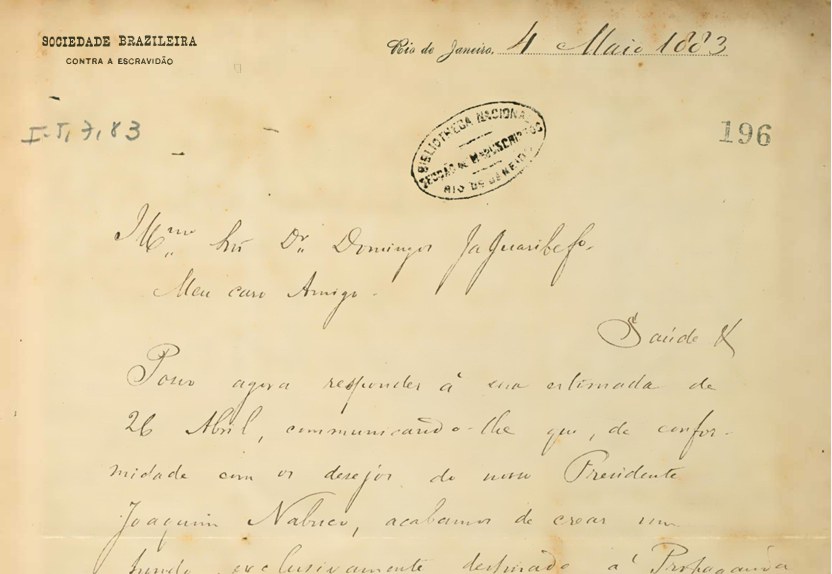 SOCIEDADE BRAZILEIRA
CONTRA A ESCRAVIDÃO
Rio de Janeiro, 4 Maio 1883
I-5,7,83
BIBLIOTHECA NACIONAL
SECÇÃO DE MANUSCRIPTOS
RIO DE JANEIRO
196
Illmo Snr Dr Domingos Jaguaribe fo.
Meu caro Amigo.
Saúde &
Posso agora responder á sua estimada de
26 Abril, communicando-lhe que, de confor-
midade com os desejos do nosso Presidente
Joaquim Nabuco, acabamos de crear um
fundo exclusivamente destinado á Propaganda